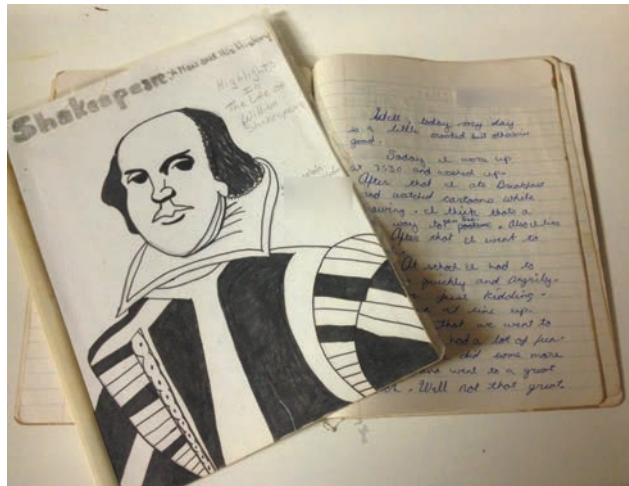 Shakespeare: A Man and His History
Highlights
In
The Life of
William
Shakespeare
Well, today my day
is a little crooked but otherwise
good.
Today I woke up
at 7:30 and washed up.
After that I ate Breakfast
and watched cartoons while
drawing. I think thats a
way to
After that I went to
At school I had to
quickly and
just kidding.
line up.
that we went to
had a lot of fun
did some more
and went to a great
Well not that great